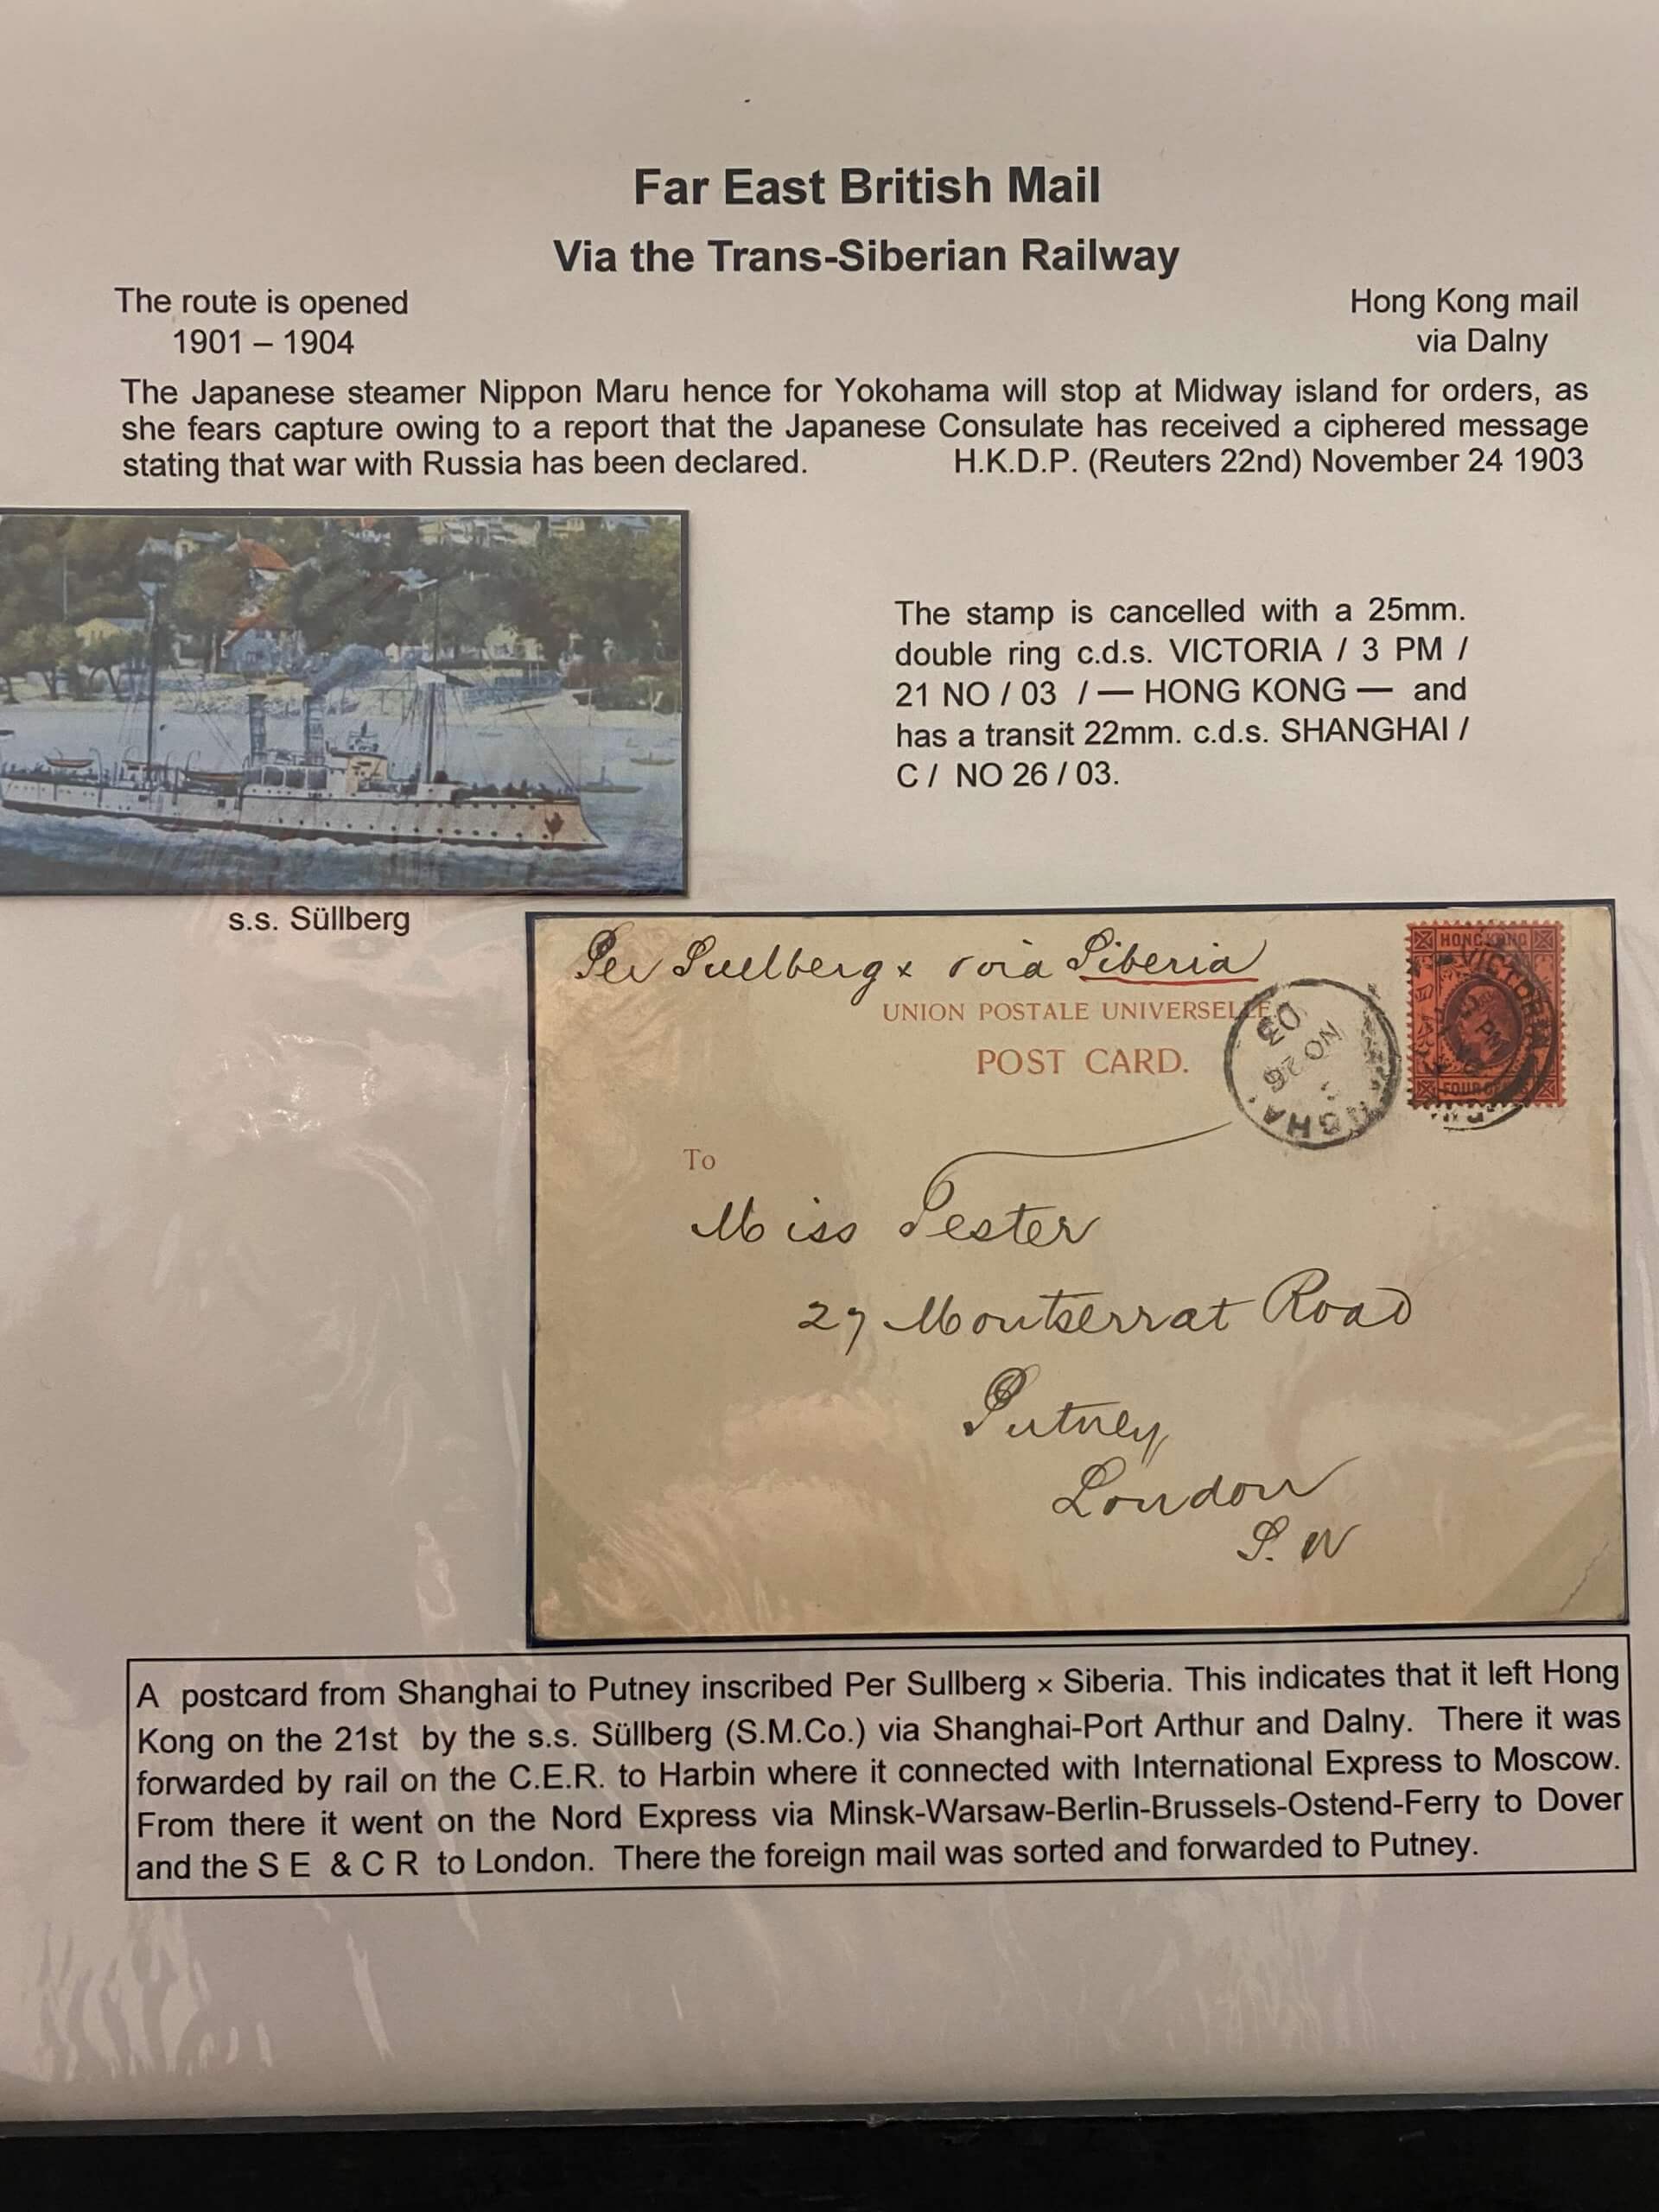 Far East British Mail
Via the Trans-Siberian Railway
The route is opened
1901 – 1904
Hong Kong mail
via Dalny
The Japanese steamer Nippon Maru hence for Yokohama will stop at Midway island for orders, as
she fears capture owing to a report that the Japanese Consulate has received a ciphered message
stating that war with Russia has been declared. H.K.D.P. (Reuters 22nd) November 24 1903
The stamp is cancelled with a 25mm.
double ring c.d.s. VICTORIA / 3 PM /
21 NO / 03 / — HONG KONG — and
has a transit 22mm. c.d.s. SHANGHAI /
C / NO 26 / 03.
s.s. Süllberg
Per Suelberg x via Siberia
UNION POSTALE UNIVERSELLE
POST CARD.
HONG KONG
VICTORIA
FOUR
NO 26
03
To
Miss Pester
27 Montserrat Road
Putney
London
S. W
A postcard from Shanghai to Putney inscribed Per Sullberg × Siberia. This indicates that it left Hong
Kong on the 21st by the s.s. Süllberg (S.M.Co.) via Shanghai-Port Arthur and Dalny. There it was
forwarded by rail on the C.E.R. to Harbin where it connected with International Express to Moscow.
From there it went on the Nord Express via Minsk-Warsaw-Berlin-Brussels-Ostend-Ferry to Dover
and the S E & C R to London. There the foreign mail was sorted and forwarded to Putney.